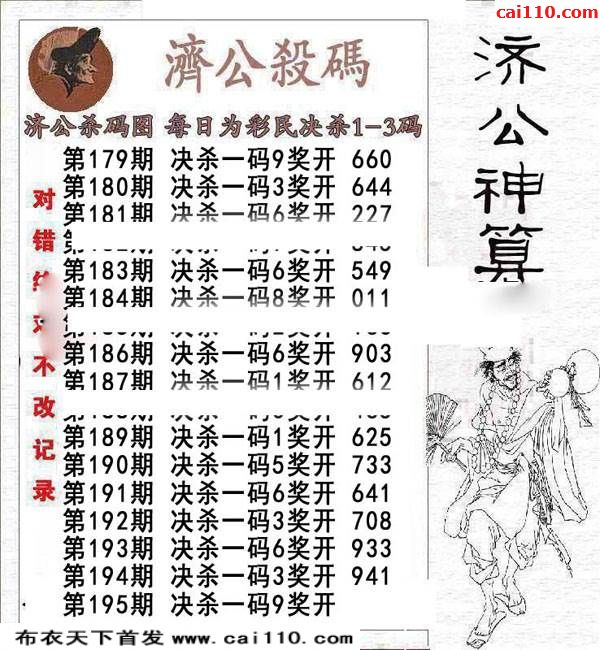 cai110.com
濟公殺碼
济公杀码图 每日为彩民决杀1-3码
第179期 决杀一码9奖开 660
第180期 决杀一码3奖开 644
第181期 决杀一码6奖开 227
第183期 决杀一码6奖开 549
第184期 决杀一码8奖开 011
第186期 决杀一码6奖开 903
第187期 决杀一码1奖开 612
第189期 决杀一码1奖开 625
第190期 决杀一码5奖开 733
第191期 决杀一码6奖开 641
第192期 决杀一码3奖开 708
第193期 决杀一码6奖开 933
第194期 决杀一码3奖开 941
第195期 决杀一码9奖开
对错 不改记录
济公神算
布衣天下首发 www.cai110.com